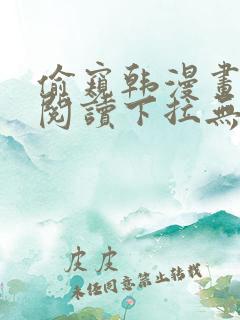 偷窺韩漫畫
閱讀下拉無
皮皮
未经同意禁止转载